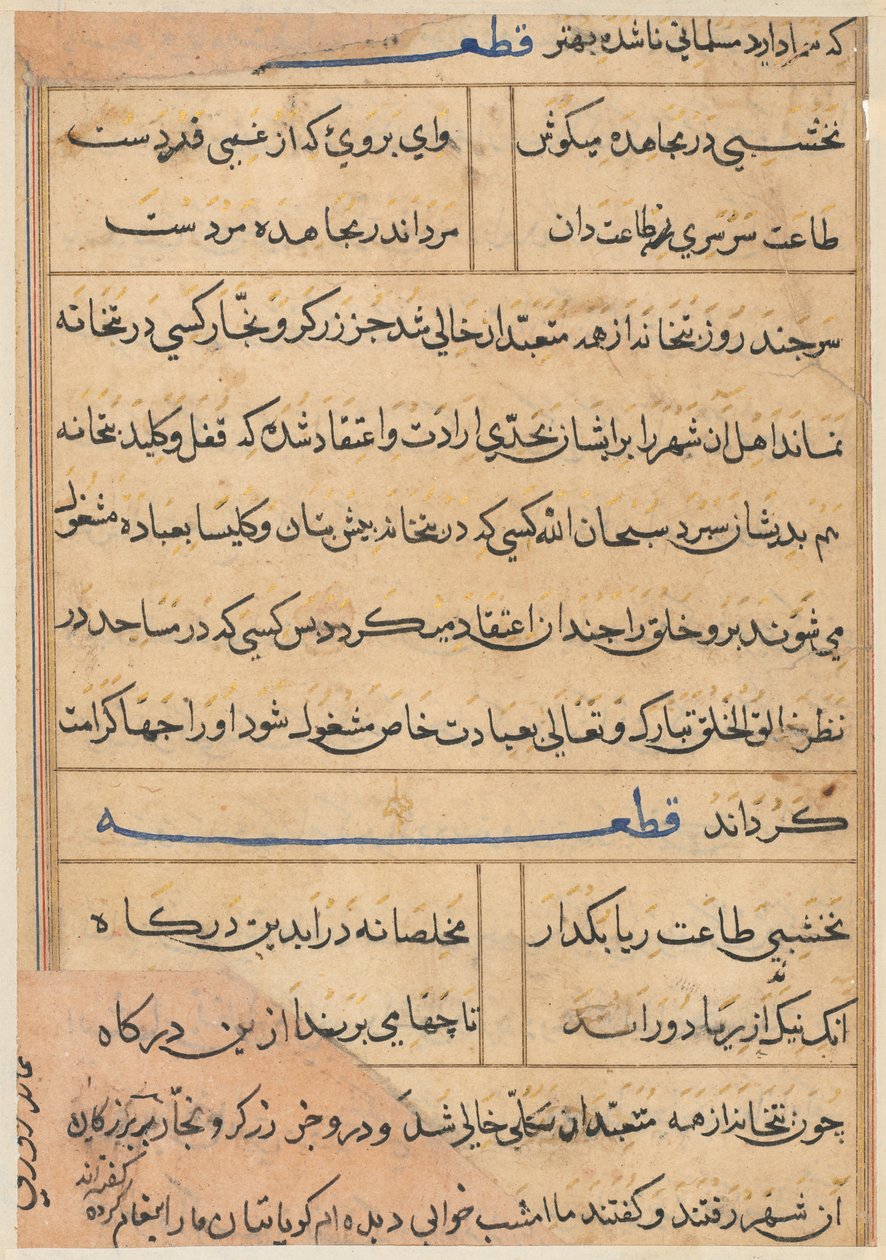 که سزا دارد مسلمانی ناشده بهتر قطعه
نخشبی در مجاهده میکوش وای بروی که از غیبی فردست
طاعت سرسری نه طاعت دان مرد اندر مجاهده مردست
سر جند روز بتخانه از همه متعبدان خالی شد جز زرکر و نجار کسی در بتخانه
نماند اهل ان شهر را بر ایشان بحدی ارادت و اعتقاد شده که قفل و کلید بتخانه
هم بدیشان سپرد سبحان الله کسی که در بتخانه پیش بتان و کلیسا بعباده مشغول
می شوند برو خلق را جندان اعتقاد میکردد بس کسی که در مساجد در
نظر خالق الخلق تبارک و تعالی بعبادت خاص مشغول شود او را جها کرامت
کرداند قطعه
نخشبی طاعت ریا بکذار مخلصانه در اید بن درکاه
انک نیک از ریا دوراند تا چها می برند ازین درکاه
چون بتخانه از همه متعبدان بکلی خالی شد و درو جز زرکر و نجار بر بزرکان
ان شهر رفتند و کفتند ما امشب خوابی دیده ام کویا بتان ما را
کفته اند
کرده